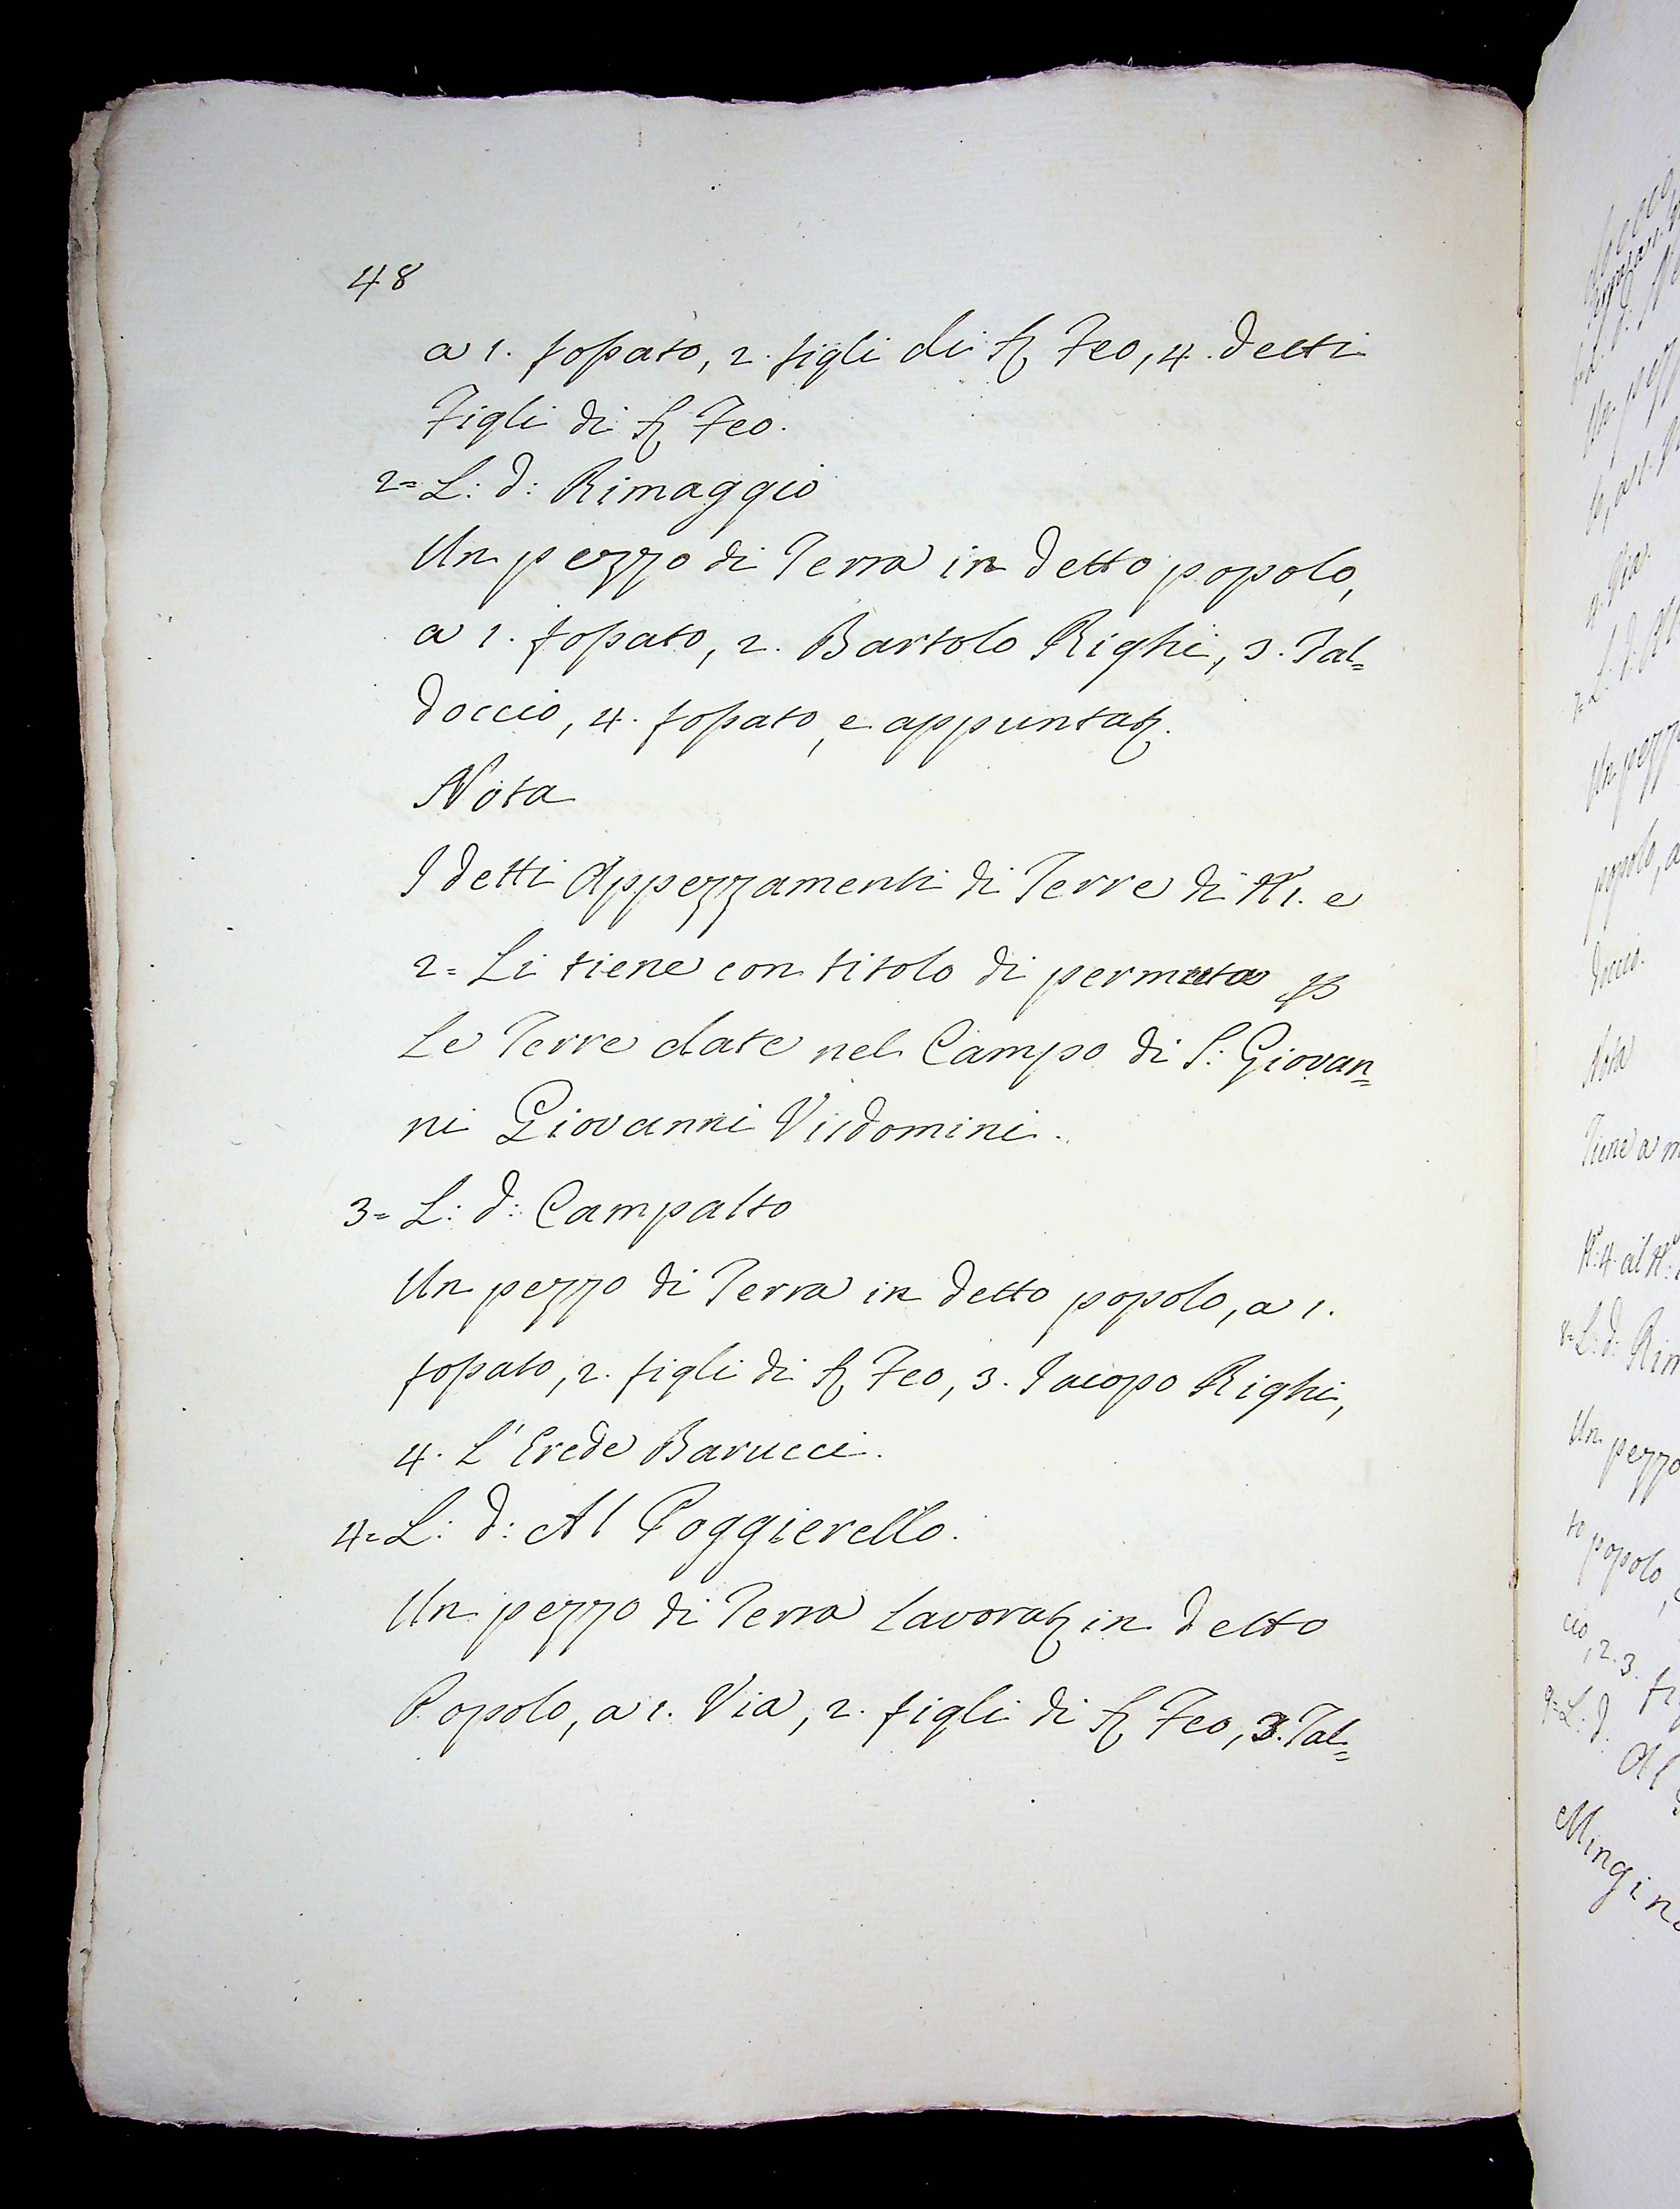 48
a 1. fossato, 2. figli di Ser Feo, 4. detti
Figli di Ser Feo.
2= L: d: Rimaggio
Un pezzo di Terra in detto popolo,
a 1. fossato, 2. Bartolo Righi, 3. Tal=
doccio, 4. fossato, e appuntat.
Nota
I detti Appezzamenti di Terre di N. 1. e
2= Li tiene con titolo di permuta p
Le Terre date nel Campo di S: Giovan=
ni Giovanni Visdomini.
3= L: d: Campalto
Un pezzo di Terra in detto popolo, a 1.
fossato, 2. figli di Ser Feo, 3. Iacopo Righi,
4. L'Erede Barucci.
4= L: d: Al Poggierello.
Un pezzo di Terra Lavorat. in detto
Popolo, a 1. Via, 2. figli di Ser Feo, 3. Tal=
Un pezzo
popolo, a
doccio.
Nota
Tiene a
8= L: d: Rim
Un pezzo
to popolo,
cio, 2. 3. fi
9= L: d:
Al